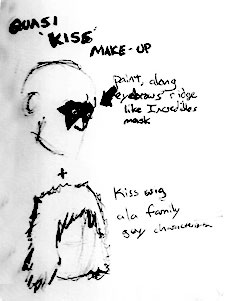 QUASI
'KISS'
MAKE-UP
paint, along
eyebrows ridge
like Incredibles
mask
+
Kiss wig
ala family
guy characterization